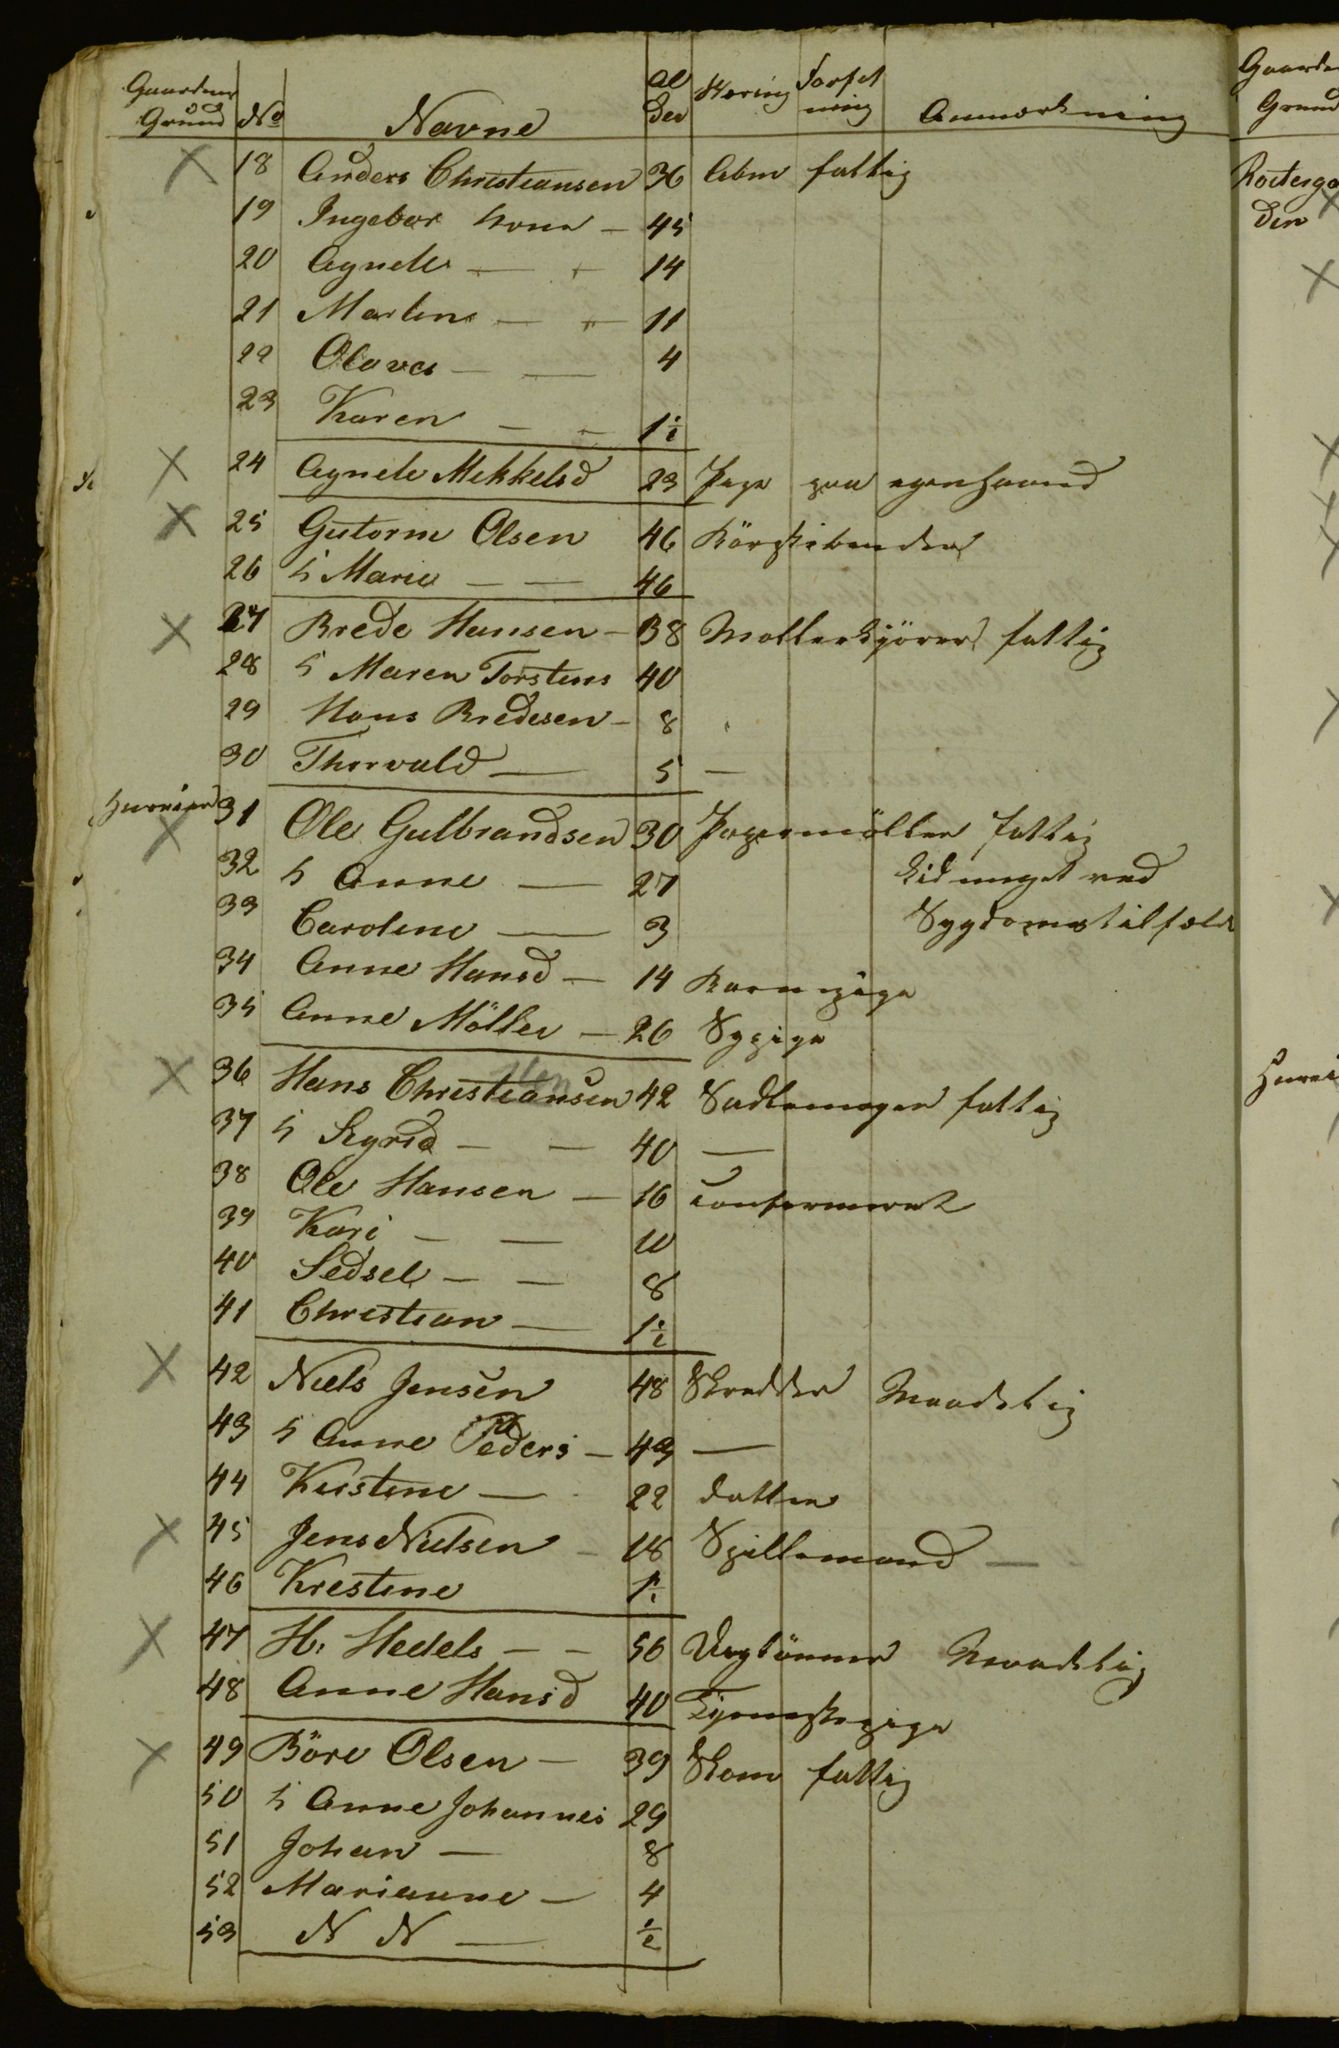 Gaardens Grund No Navne Al der Næring Forfat ning Anmærkning
18 Anders Christiansen 36 Abm fattig
19 Ingebor kone - 45
20 Agnete - - 14
21 Martine - - 11
22 Olava - - 4
23 Karen - - 1½
24 Agnete Mikkelsd 23 Pige paa egenhaand
25 Gutorm Olsen 46 Börstebinder
26 h Marie - - 46
27 Brede Hansen - 38 Møllerkjörer fattig
28 h Maren Torstens 40
29 Hans Bredesen - 8
30 Thorvald - 5 -
31 Ole Gulbrandsen 30 Papermöller fattig
32 h Anne - 27 Lid meget ved
33 Caroline - 3 Sygdomstilfælde
34 Anne Hansd - 14 Barnepige
35 Anne Möller - 26 Sypige
36 Hans Christiansen 42 Sadlemager fattig
37 h Sigrid - - 40 -
38 Ole Hansen - 16 confirmeret
39 Kari - - 10
40 Sidsel - - 8
41 Christian - 1½
42 Niels Jensen 48 Skredder Maadelig
43 h Anne Peders - 49 -
44 Kirstine - 22 datter
45 Jens Nielsen - 18 Spillemand -
46 Krestine 1½
47 H. Hedels - - 56 Maadelig
48 Anne Hansd 40 Tjenestepige
49 Böre Olsen - 39 Skom fattig
50 h Anne Johannes 29
51 Johan - 8
52 Marianne - 4
53 N N - ½
Gaarde
Grund
Roitesga
den